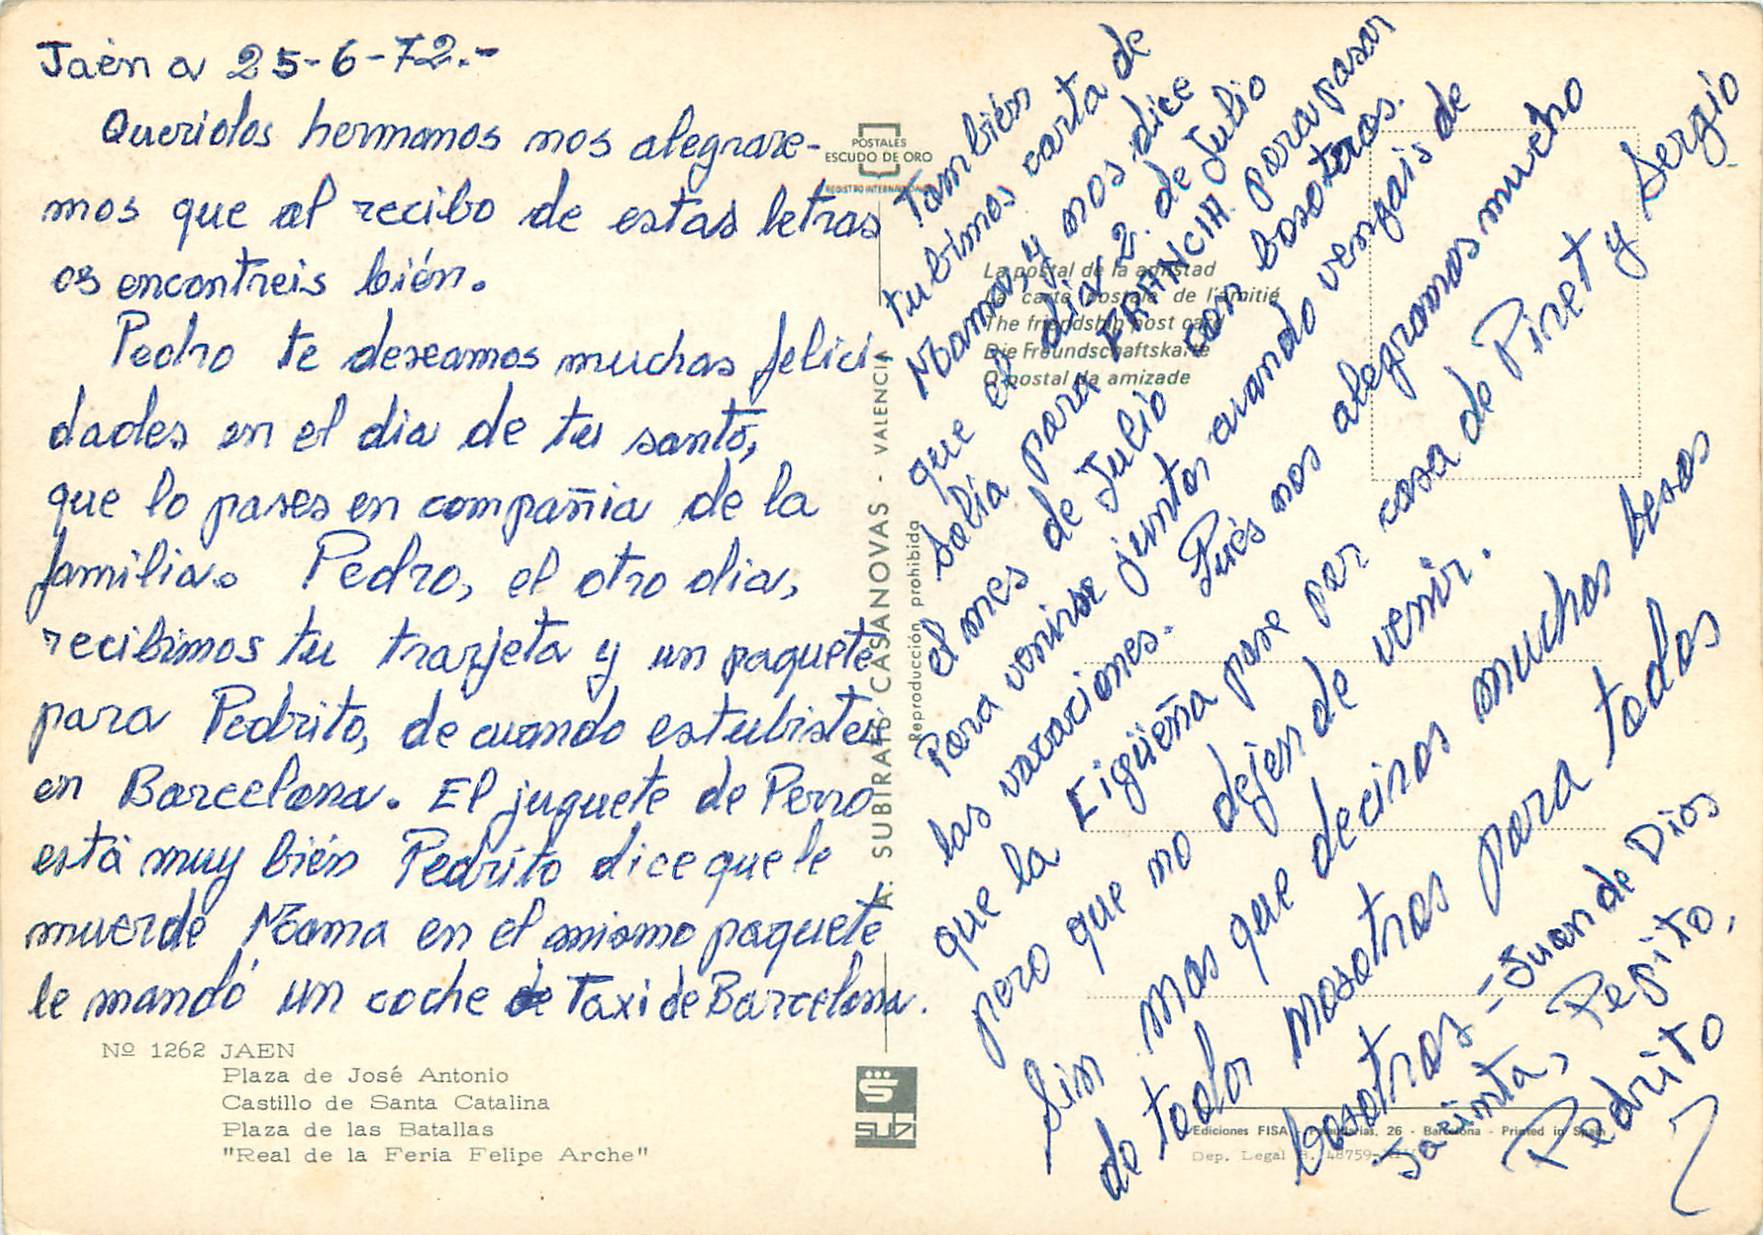 Jaén a 25-6-72.-
Queridos hermanos nos alegrare-
mos que al recibo de estas letras
os encontreis bién.
Pedro te deseamos muchas felici
dades en el dia de tu santo,
que lo pases en compañia de la
familia. Pedro, el otro dia,
recibimos tu trarjeta y un paquete
para Pedrito, de cuando estubistes
en Barcelona. El juguete de Perro
está muy bién Pedrito dice que le
muerde Mama en el mismo paquete
le mandó un coche de Taxi de Barcelona.
Nº 1262 JAEN
Plaza de José Antonio
Castillo de Santa Catalina
Plaza de las Batallas
"Real de la Feria Felipe Arche"
POSTALES
ESCUDO DE ORO
REGISTRO INTERNACIONAL
A. SUBIRATS CASANOVAS - VALENCIA
Reproducción prohibida
La postal de la amistad
La carte postale de l'amitié
The friendship post card
Die Freundschaftskarte
O postal da amizade
También
tubimos carta de
Mama, y nos dice
que el dia 2 de Julio
Salia para FRANCIA para pasar
el mes de Julio con bosotros.
Para venirse juntos cuando vengais de
las vacaciones. Pués nos alegramos mucho
que la Cigüeña pase por casa de Piret y Sergio
pero que no dejen de venir.
Sin mas que deciros muchos besos
de todos nosotros para todos
bosotros - Juan de Dios
Jacinta, Pepito,
Pedrito
SUBI
Ediciones FISA - Palaudarias, 26 - Barcelona - Printed in Spain
Dep. Legal B. 48759-